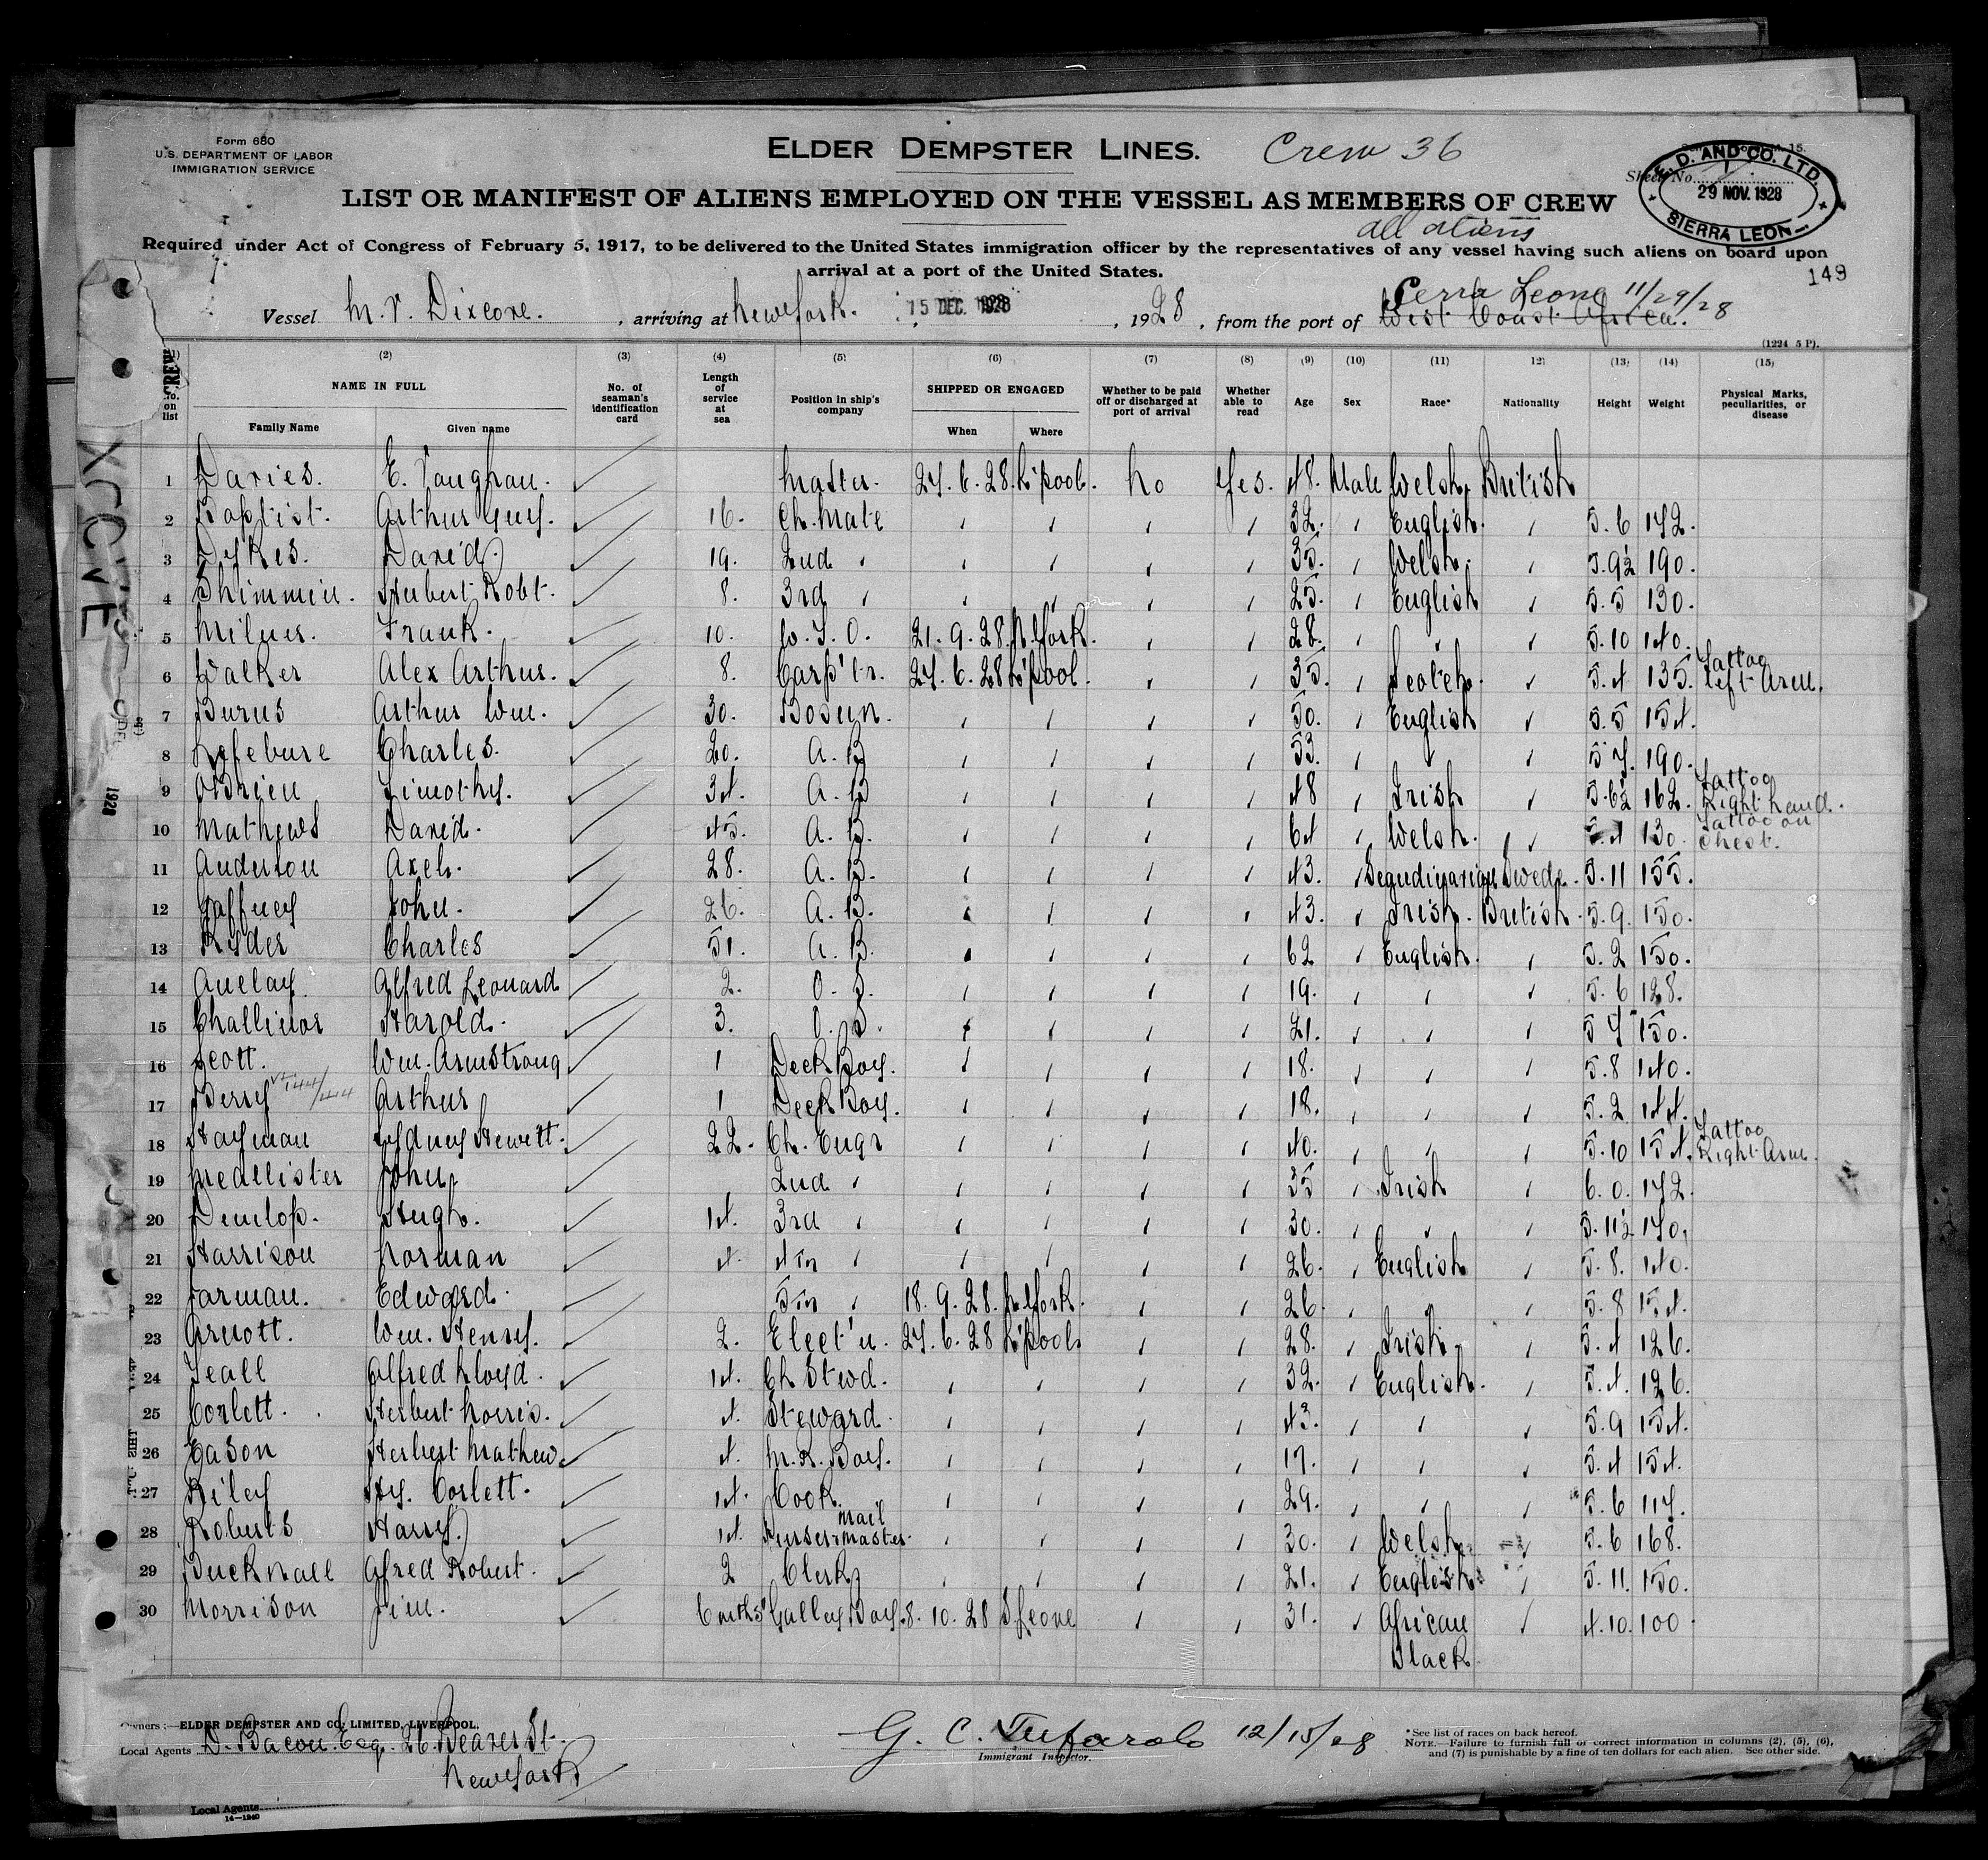 Form 680
U.S. DEPARTMENT OF LABOR
IMMIGRATION SERVICE
ELDER DEMPSTER LINES. Crew 36
Sheet No.
E. D. AND CO. LTD.
29 NOV. 1928
SIERRA LEON
LIST OR MANIFEST OF ALIENS EMPLOYED ON THE VESSEL AS MEMBERS OF CREW
all aliens
Required under Act of Congress of February 5, 1917, to be delivered to the United States immigration officer by the representatives of any vessel having such aliens on board upon
arrival at a port of the United States.
149
Serra Leone 11/29/28
Vessel M.V. Dixcove. , arriving at New York. 15 DEC. 1928 , 1928 , from the port of West Coast Africa.
(1224 5 P).
(2) (3) (4) (5) (6) (7) (8) (9) (10) (11) (12) (13) (14) (15)
No. on list NAME IN FULL Family Name Given name No. of seaman's identification card Length of service at sea Position in ship's company SHIPPED OR ENGAGED When Where Whether to be paid off or discharged at port of arrival Whether able to read Age Sex Race* Nationality Height Weight Physical Marks, peculiarities, or disease
1 Davies. E. Vaughan. Master. 27.6.28. L'pool. No Yes. 48. Male Welsh. British
2 Baptist. Arthur Guy. 16. Ch. Mate 32. English. 5.6 172.
3 Dykes. David 19. 2nd 35. Welsh. 5.9½ 190.
4 Shimmin. Hubert Robt. 8. 3rd 25. English 5.5 130.
5 Milnes. Frank. 10. W.T.O. 21.9.28. N.York. 28. 5.10 140.
6 Walker Alex Arthur. 8. Carp'tr. 27.6.28 L'pool. 35. Scotch. 5.4 135. Tattoo left arm.
7 Burns Arthur Wm. 30. Bosun. 50. English 5.5 154.
8 Lefebure Charles. 20. A.B 53. 5 7. 190.
9 O'Brien Timothy. 34. A.B 48 Irish 5.6½ 162. Tattoo Right hand.
10 Mathews David. 45. A.B. 64 Welsh. 5.4 130. Tattoo on chest.
11 Anderson Axel. 28. A.B. 43. Scandinavian Swede. 5.11 155.
12 Gaffney John. 26. A.B. 43. Irish. British. 5.9. 150.
13 Ryder Charles 51. A.B. 62 English. 5.2 150.
14 Anelay Alfred Leonard 2. O.S. 19. 5.6 128.
15 Challinor Harold. 3. O.S. 21. 5 7 150.
16 Scott. Wm. Armstrong 1 Deck Boy. 18. 5.8 140.
17 Berry Arthur 1 Deck Boy. 18. 5.2 144.
18 Hayman Sydney Hewitt. 22. Ch. Engr 40. 5.10 154. Tattoo Right Arm.
19 McAllister John 2nd 35 Irish 6.0. 172.
20 Dunlop. Hugh. 14. 3rd 30. 5.11½ 170.
21 Harrison Norman 4. 4th 26. English 5.8. 140.
22 Jarman. Edward. 5th 18.9.28. N.York. 26. 5.8 154.
23 Arnott. Wm. Henry. 2. Elect'n. 27.6.28 L'pool 28. Irish. 5.4 126.
24 Teall Alfred Lloyd. 14. Ch Stwd. 32. English. 5.4. 126.
25 Corlett. Herbert Norris. 4. Steward. 43. 5.9 154.
26 Eason Herbert Mathew 4. M.R. Boy. 17. 5.4 154.
27 Riley Hy. Corlett. 14. Cook. 29. 5.6 117.
28 Roberts Harry 14. Purser & Mail master. 30. Welsh 5.6 168.
29 Bucknall Alfred Robert. 2 Clerk 21. English 5.11. 150.
30 Morrison Jim. 6 mths Galley Boy. 8.10.28 S Leone 31. African Black. 4.10. 100
Owners:—ELDER DEMPSTER AND CO. LIMITED, LIVERPOOL.
Local Agents D. Bacon. Esq. 26. Beaver St.
New York
G. C. 12/15/28
Immigrant Inspector.
*See list of races on back hereof.
NOTE.—Failure to furnish full or correct information in columns (2), (5), (6),
and (7) is punishable by a fine of ten dollars for each alien. See other side.
Local Agents
14—1240